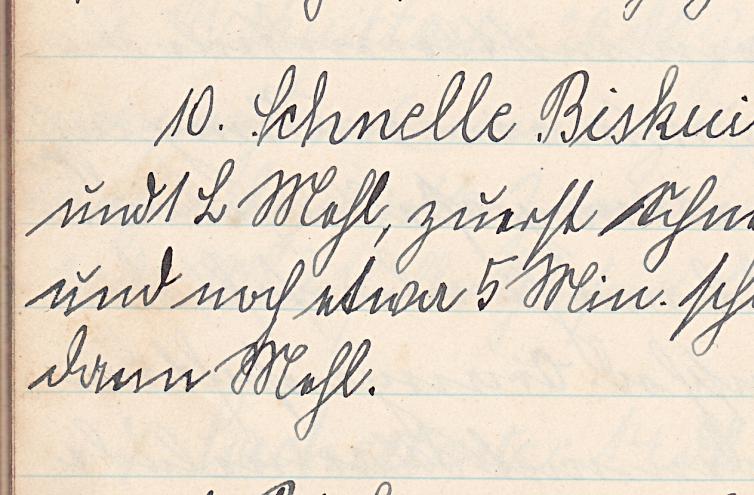 10. Schnelle Biskui
und 1 L Mehl, zuerst Schn
und noch etwa 5 Min. sch
dann Mehl.